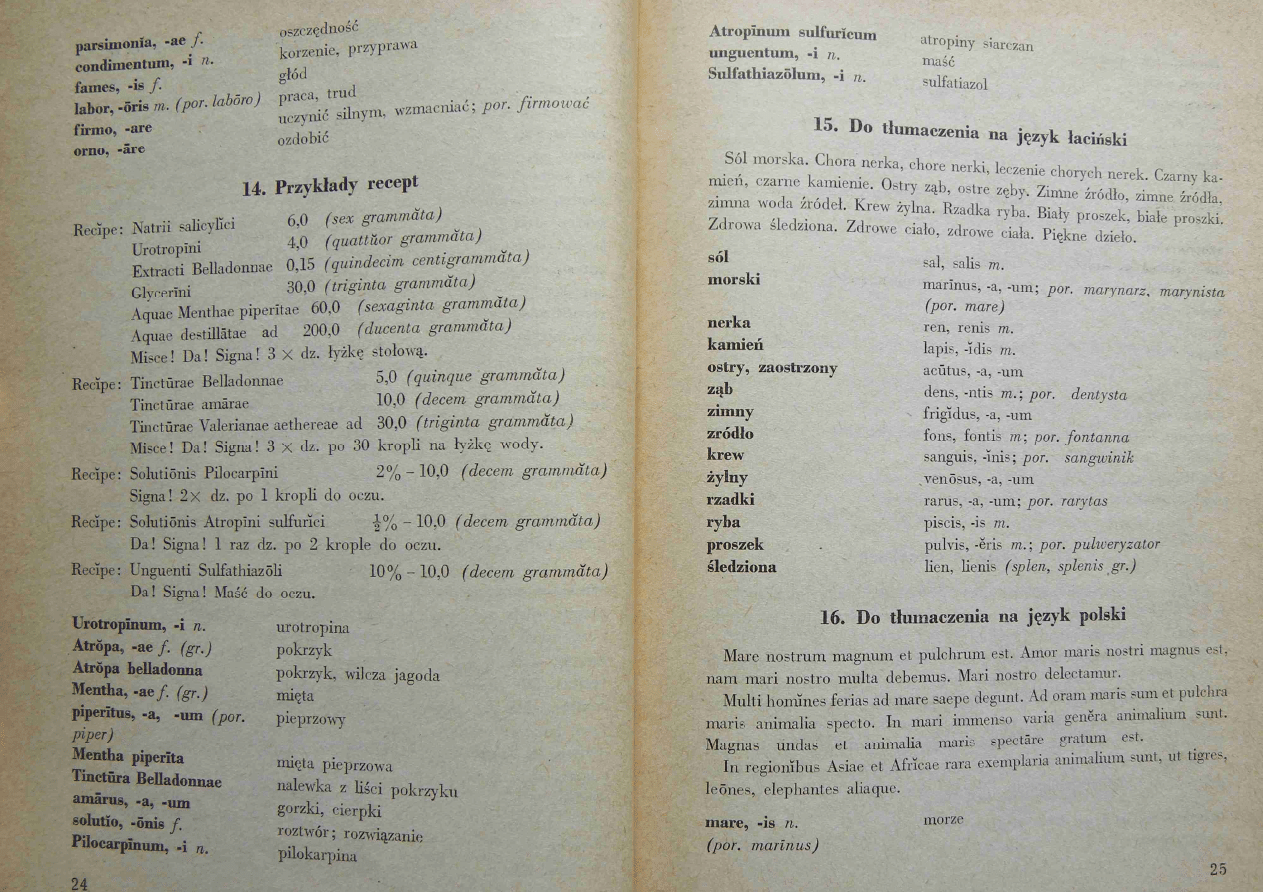 parsimonia, -ae f. oszczędność
condimentum, -i n. korzenie, przyprawa
fames, -is f. głód
labor, -ōris m. (por. labōro) praca, trud
firmo, -are uczynić silnym, wzmacniać; por. firmować
orno, -āre ozdobić
14. Przykłady recept
Recĭpe: Natrii salicylĭci 6,0 (sex grammăta)
Urotropīni 4,0 (quattŭor grammăta)
Extracti Belladonnae 0,15 (quindecim centigrammăta)
Glycerīni 30,0 (triginta grammăta)
Aquae Menthae piperītae 60,0 (sexaginta grammăta)
Aquae destillātae ad 200,0 (ducenta grammăta)
Misce! Da! Signa! 3 × dz. łyżkę stołową.
Recĭpe: Tinctūrae Belladonnae 5,0 (quinque grammăta)
Tinctūrae amārae 10,0 (decem grammăta)
Tinctūrae Valerianae aethereae ad 30,0 (triginta grammăta)
Misce! Da! Signa! 3 × dz. po 30 kropli na łyżkę wody.
Recĭpe: Solutiōnis Pilocarpīni 2% – 10,0 (decem grammăta)
Signa! 2× dz. po 1 kropli do oczu.
Recĭpe: Solutiōnis Atropīni sulfurĭci ½% – 10,0 (decem grammăta)
Da! Signa! 1 raz dz. po 2 krople do oczu.
Recĭpe: Unguenti Sulfathiazōli 10% – 10,0 (decem grammăta)
Da! Signa! Maść do oczu.
Urotropīnum, -i n. urotropina
Atrŏpa, -ae f. (gr.) pokrzyk
Atrŏpa belladonna pokrzyk, wilcza jagoda
Mentha, -ae f. (gr.) mięta
piperītus, -a, -um (por. pieprzowy
piper)
Mentha piperīta mięta pieprzowa
Tinctūra Belladonnae nalewka z liści pokrzyku
amārus, -a, -um gorzki, cierpki
solutĭo, -ōnis f. roztwór; rozwiązanie
Pilocarpīnum, -i n. pilokarpina
24
Atropīnum sulfurĭcum atropiny siarczan
unguentum, -i n. maść
Sulfathiazōlum, -i n. sulfatiazol
15. Do tłumaczenia na język łaciński
Sól morska. Chora nerka, chore nerki, leczenie chorych nerek. Czarny ka-
mień, czarne kamienie. Ostry ząb, ostre zęby. Zimne źródło, zimne źródła,
zimna woda źródeł. Krew żylna. Rzadka ryba. Biały proszek, białe proszki.
Zdrowa śledziona. Zdrowe ciało, zdrowe ciała. Piękne dzieło.
sól sal, salis m.
morski marīnus, -a, -um; por. marynarz, marynista
(por. mare)
nerka ren, renis m.
kamień lapis, -ĭdis m.
ostry, zaostrzony acūtus, -a, -um
ząb dens, -ntis m.; por. dentysta
zimny frigĭdus, -a, -um
zródło fons, fontis m; por. fontanna
krew sanguis, -ĭnis; por. sangwinik
żylny venōsus, -a, -um
rzadki rarus, -a, -um; por. rarytas
ryba piscis, -is m.
proszek pulvis, -ĕris m.; por. pulweryzator
śledziona lien, lienis (splen, splenis gr.)
16. Do tłumaczenia na język polski
Mare nostrum magnum et pulchrum est. Amor maris nostri magnus est,
nam mari nostro multa debemus. Mari nostro delectamur.
Multi homĭnes ferias ad mare saepe degunt. Ad oram maris sum et pulchra
maris animalia specto. In mari immenso varia genĕra animalium sunt.
Magnas undas et animalia maris spectāre gratum est.
In regionĭbus Asiae et Afrĭcae rara exemplaria animalium sunt, ut tigres,
leōnes, elephantes aliaque.
mare, -is n. morze
(por. marinus)
25